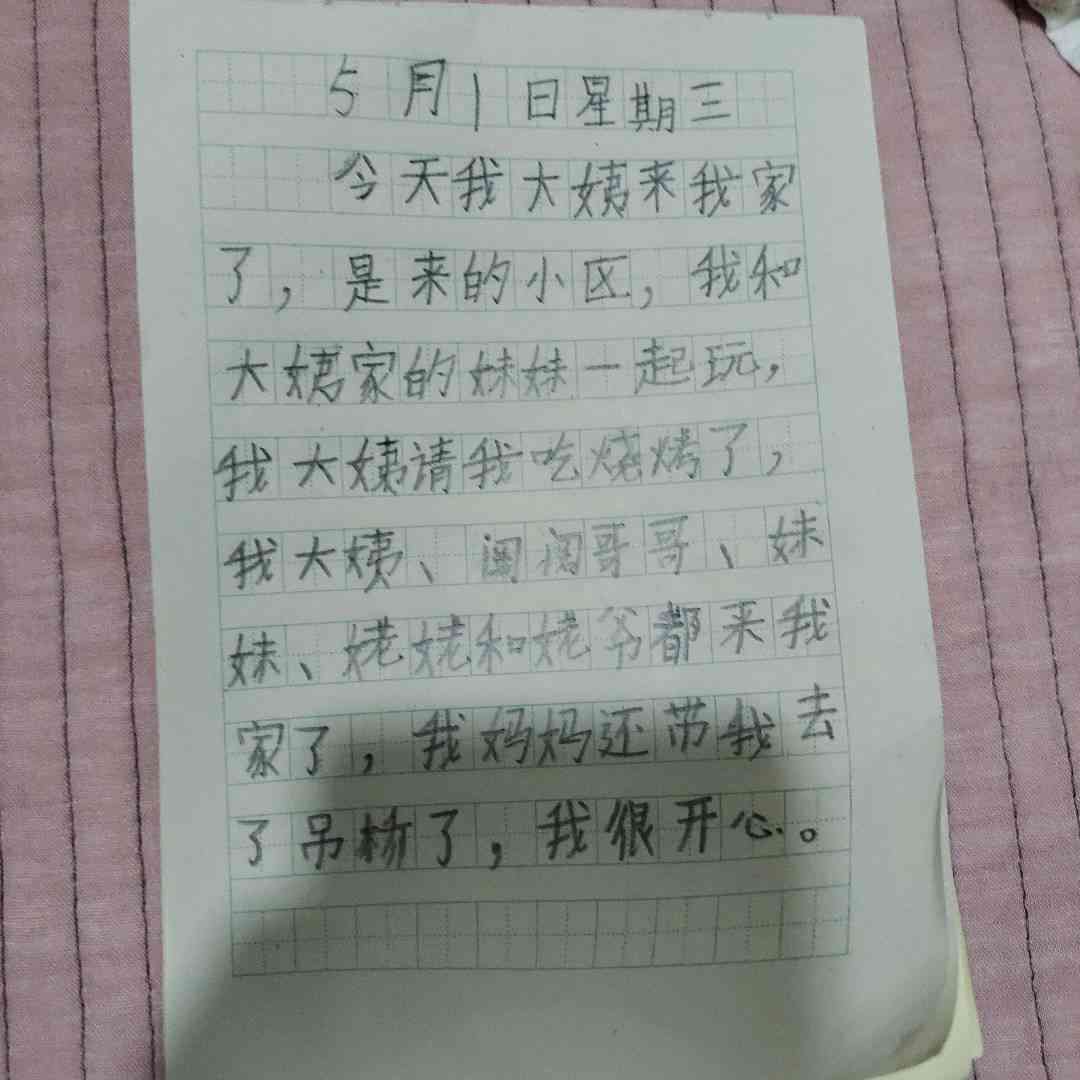 5月1日星期三
今天我大姨来我家
了，是来的小区，我和
大姨家的妹妹一起玩，
我大姨请我吃烧烤了，
我大姨、阅阅哥哥、妹
妹、姥姥和姥爷都来我
家了，我妈妈还带我去
了吊桥了，我很开心。